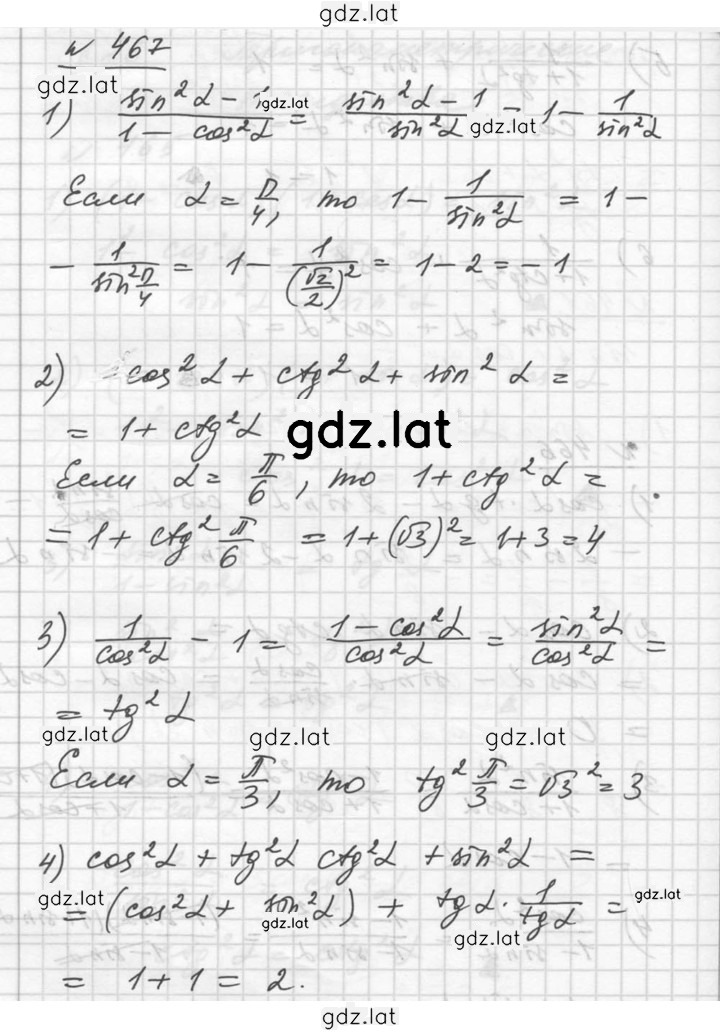 gdz.lat
№ 467
gdz.lat
1) (sin²α - 1)/(1 - cos²α) = (sin²α - 1)/(sin²α) = 1 - 1/(sin²α)
gdz.lat gdz.lat
Если α = π/4, то 1 - 1/(sin²α) = 1 -
- 1/(sin² π/4) = 1 - 1/(√2/2)² = 1 - 2 = -1
2) cos²α + ctg²α + sin²α =
= 1 + ctg²α
gdz.lat
Если α = π/6, то 1 + ctg²α =
= 1 + ctg² π/6 = 1 + (√3)² = 1 + 3 = 4
3) 1/(cos²α) - 1 = (1 - cos²α)/(cos²α) = (sin²α)/(cos²α) =
= tg²α
gdz.lat gdz.lat gdz.lat
Если α = π/3, то tg² π/3 = √3² = 3
4) cos²α + tg²α ctg²α + sin²α =
gdz.lat gdz.lat
= (cos²α + sin²α) + tgα · 1/(tgα) =
gdz.lat gdz.lat
= 1 + 1 = 2.
gdz.lat